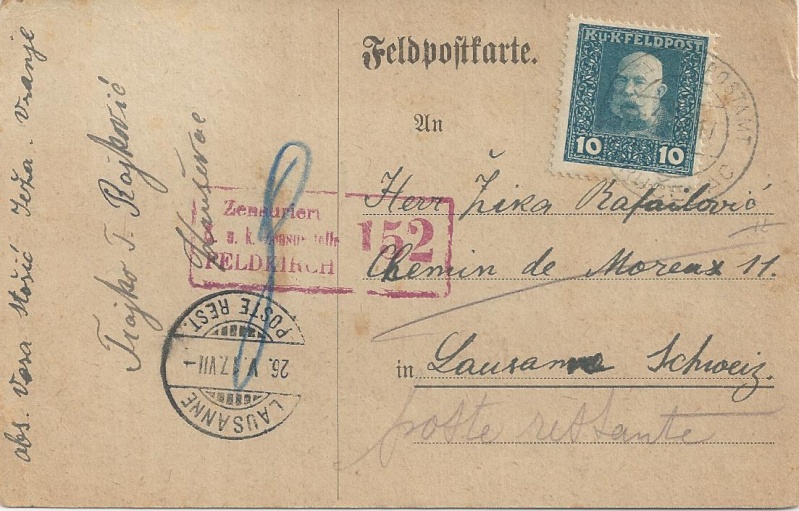 abs. Vera Stošić Ježa. Vranje
Trajko T. Rajković
Kruševac
Zensuriert
k. u. k. Zensurstelle
FELDKIRCH
152
LAUSANNE
26. V. 17. VII -
POSTE REST.
Feldpostkarte.
K.u.K. FELDPOST
10 10
An
Herr Žika Rafailović
Chemin de Mornex 11.
in Lausanne Schweiz.
poste restante